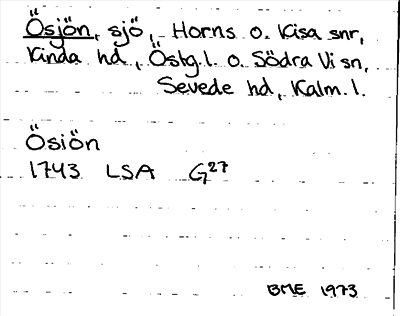 Ösjön, sjö, Horns o. Kisa snr,
Kinda hd, Östg.l. o. Södra Vi sn,
Sevede hd, Kalm.l.
Ösiön
1743 LSA G27
BME 1973